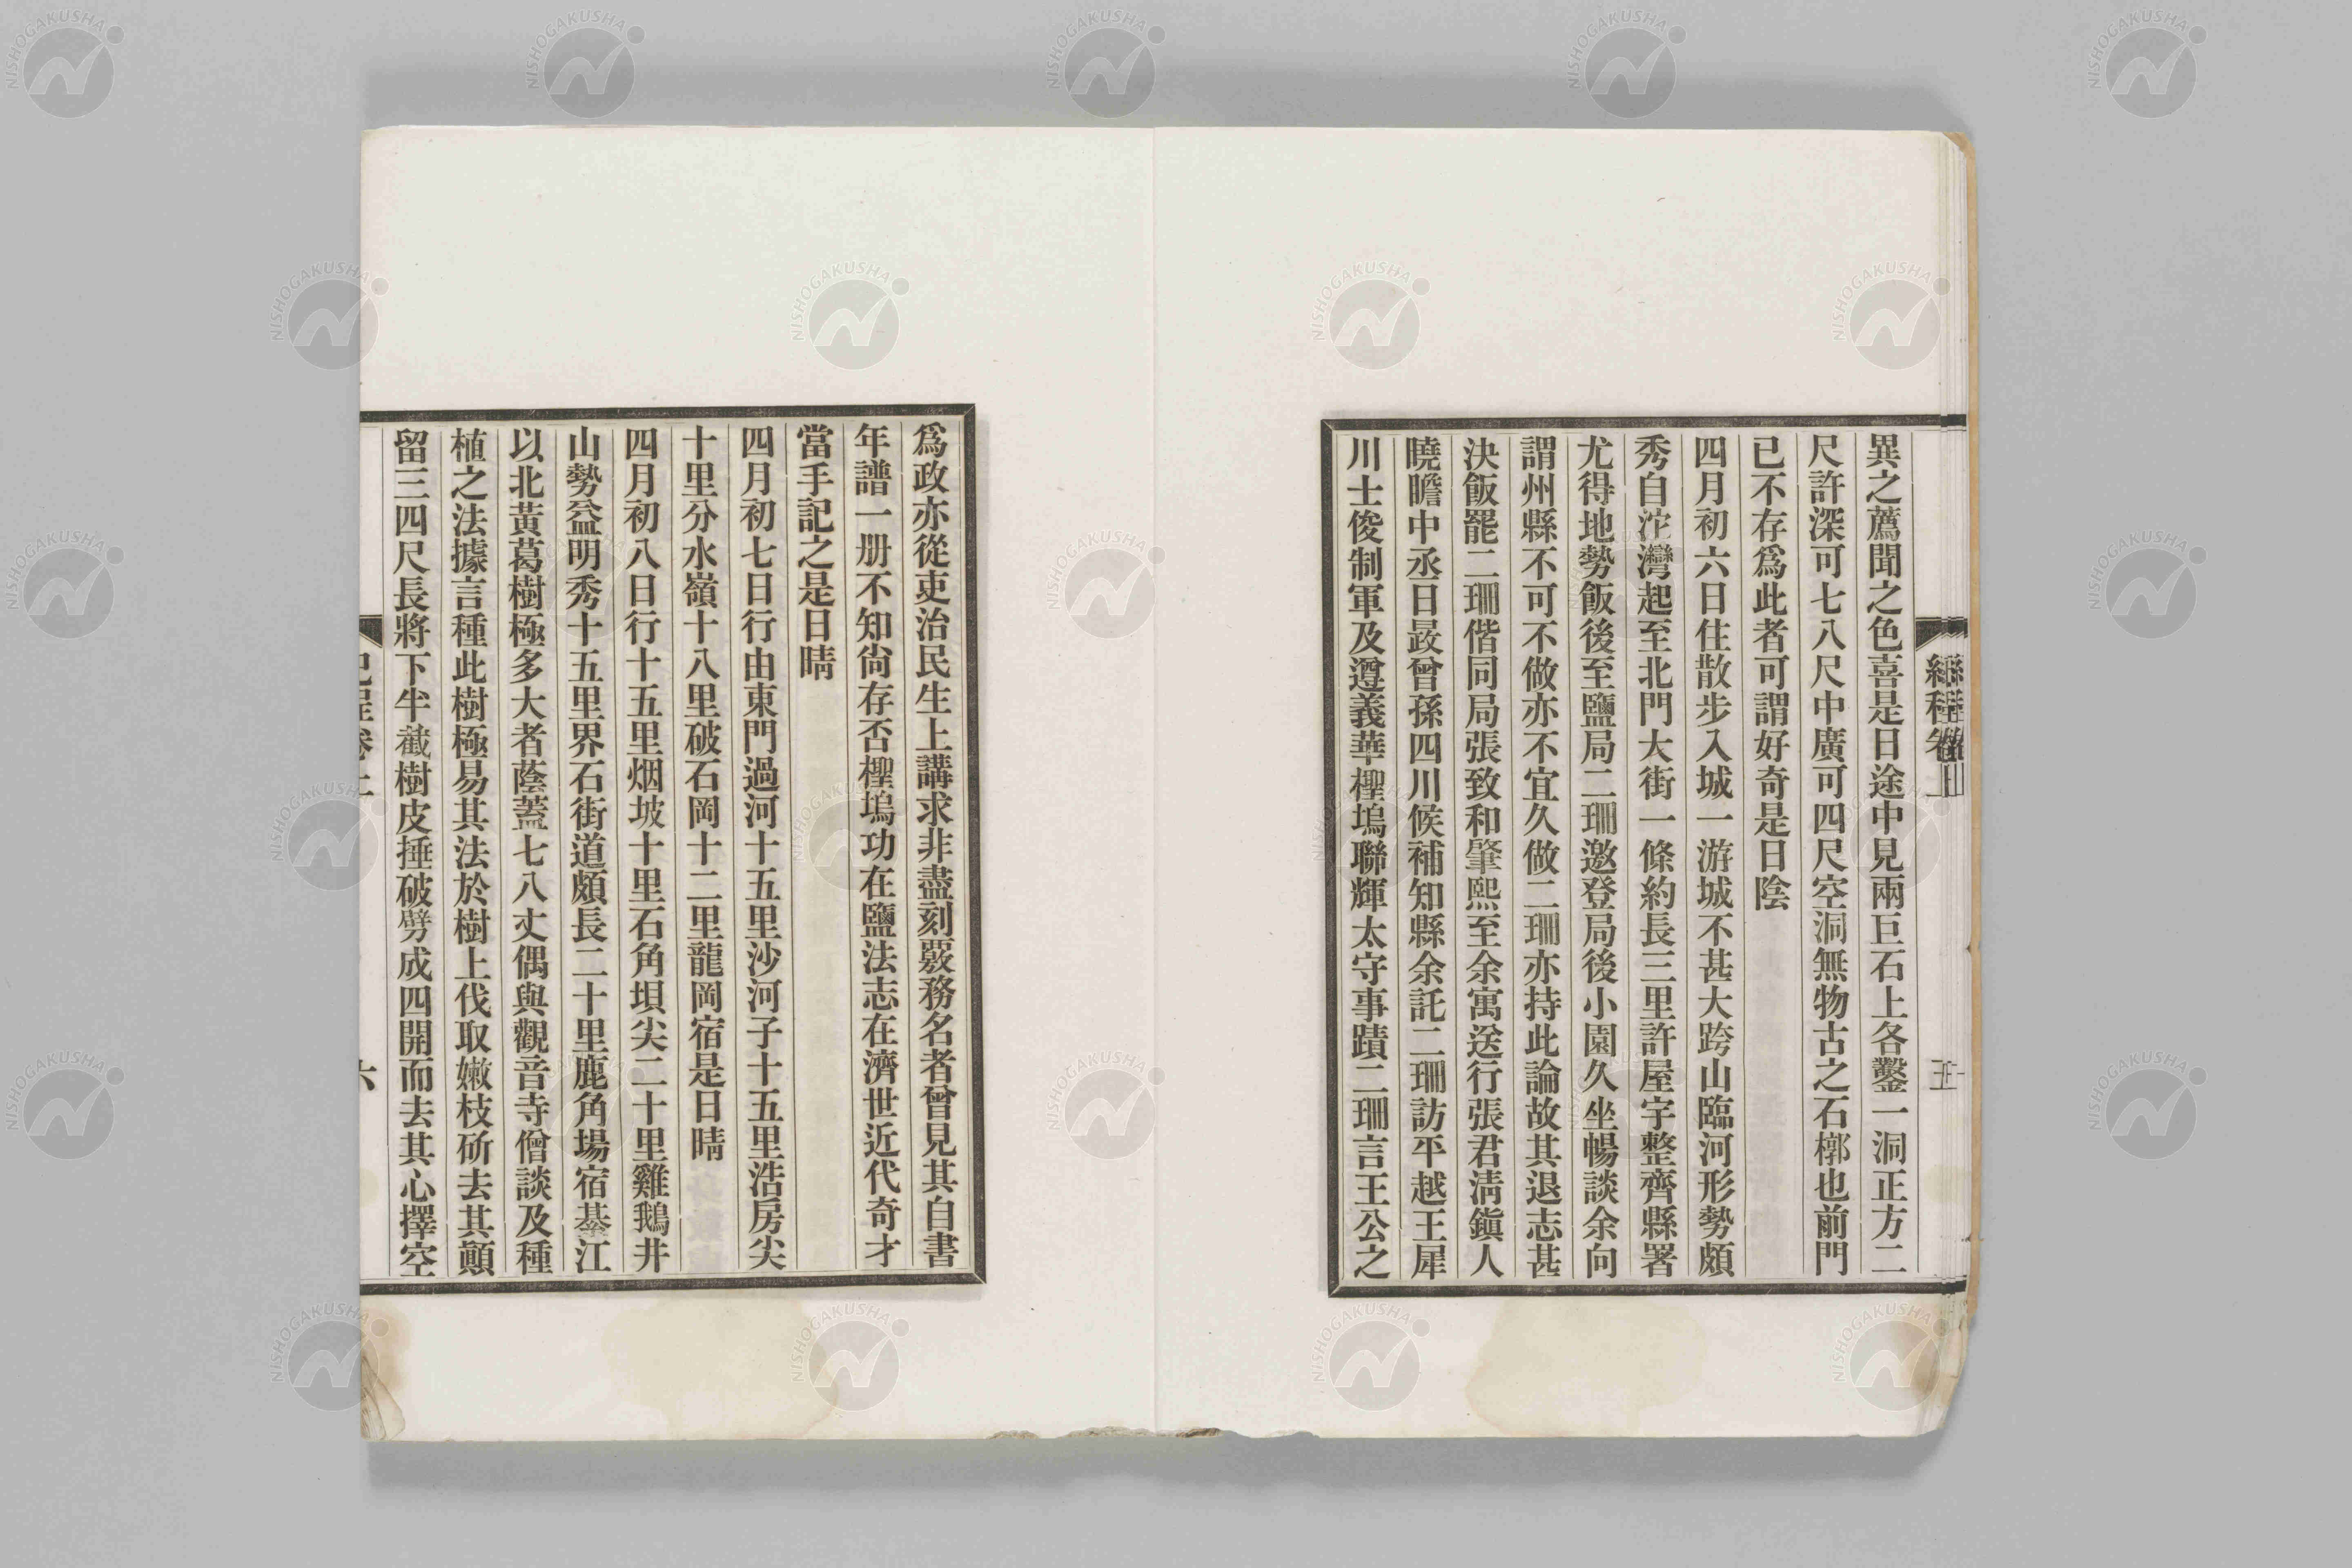 異之薦聞之色喜是日途中見兩巨石上各鑿一洞正方二
尺許深可七八尺中廣可四尺空洞無物古之石槨也前門
已不存爲此者可謂好奇是日陰
四月初六日住散步入城一游城不甚大跨山臨河形勢頗
秀自沱灣起至北門大街一條約長三里許屋宇整齊縣署
尤得地勢飯後至鹽局二珊邀登局後小園久坐暢談余向
謂州縣不可不做亦不宜久做二珊亦持此論故其退志甚
決飯罷二珊偕同局張致和肇熙至余寓送行張君淸鎭人
曉瞻中丞日晸曾孫四川候補知縣余託二珊訪平越王犀
川士俊制軍及遵義華檉塢聯輝太守事蹟二珊言王公之
五
爲政亦從吏治民生上講求非盡刻覈務名者曾見其自書
年譜一册不知尙存否檉塢功在鹽法志在濟世近代奇才
當手記之是日晴
四月初七日行由東門過河十五里沙河子十五里浩房尖
十里分水嶺十八里破石岡十二里龍岡宿是日晴
四月初八日行十五里烟坡十里石角垻尖二十里雞鵝井
山勢益明秀十五里界石街道頗長二十里鹿角場宿綦江
以北黃葛樹極多大者蔭蓋七八丈偶與觀音寺僧談及種
植之法據言種此樹極易其法於樹上伐取嫩枝斫去其顚
留三四尺長將下半截樹皮捶破劈成四開而去其心擇空
六
NISHOGAKUSHA